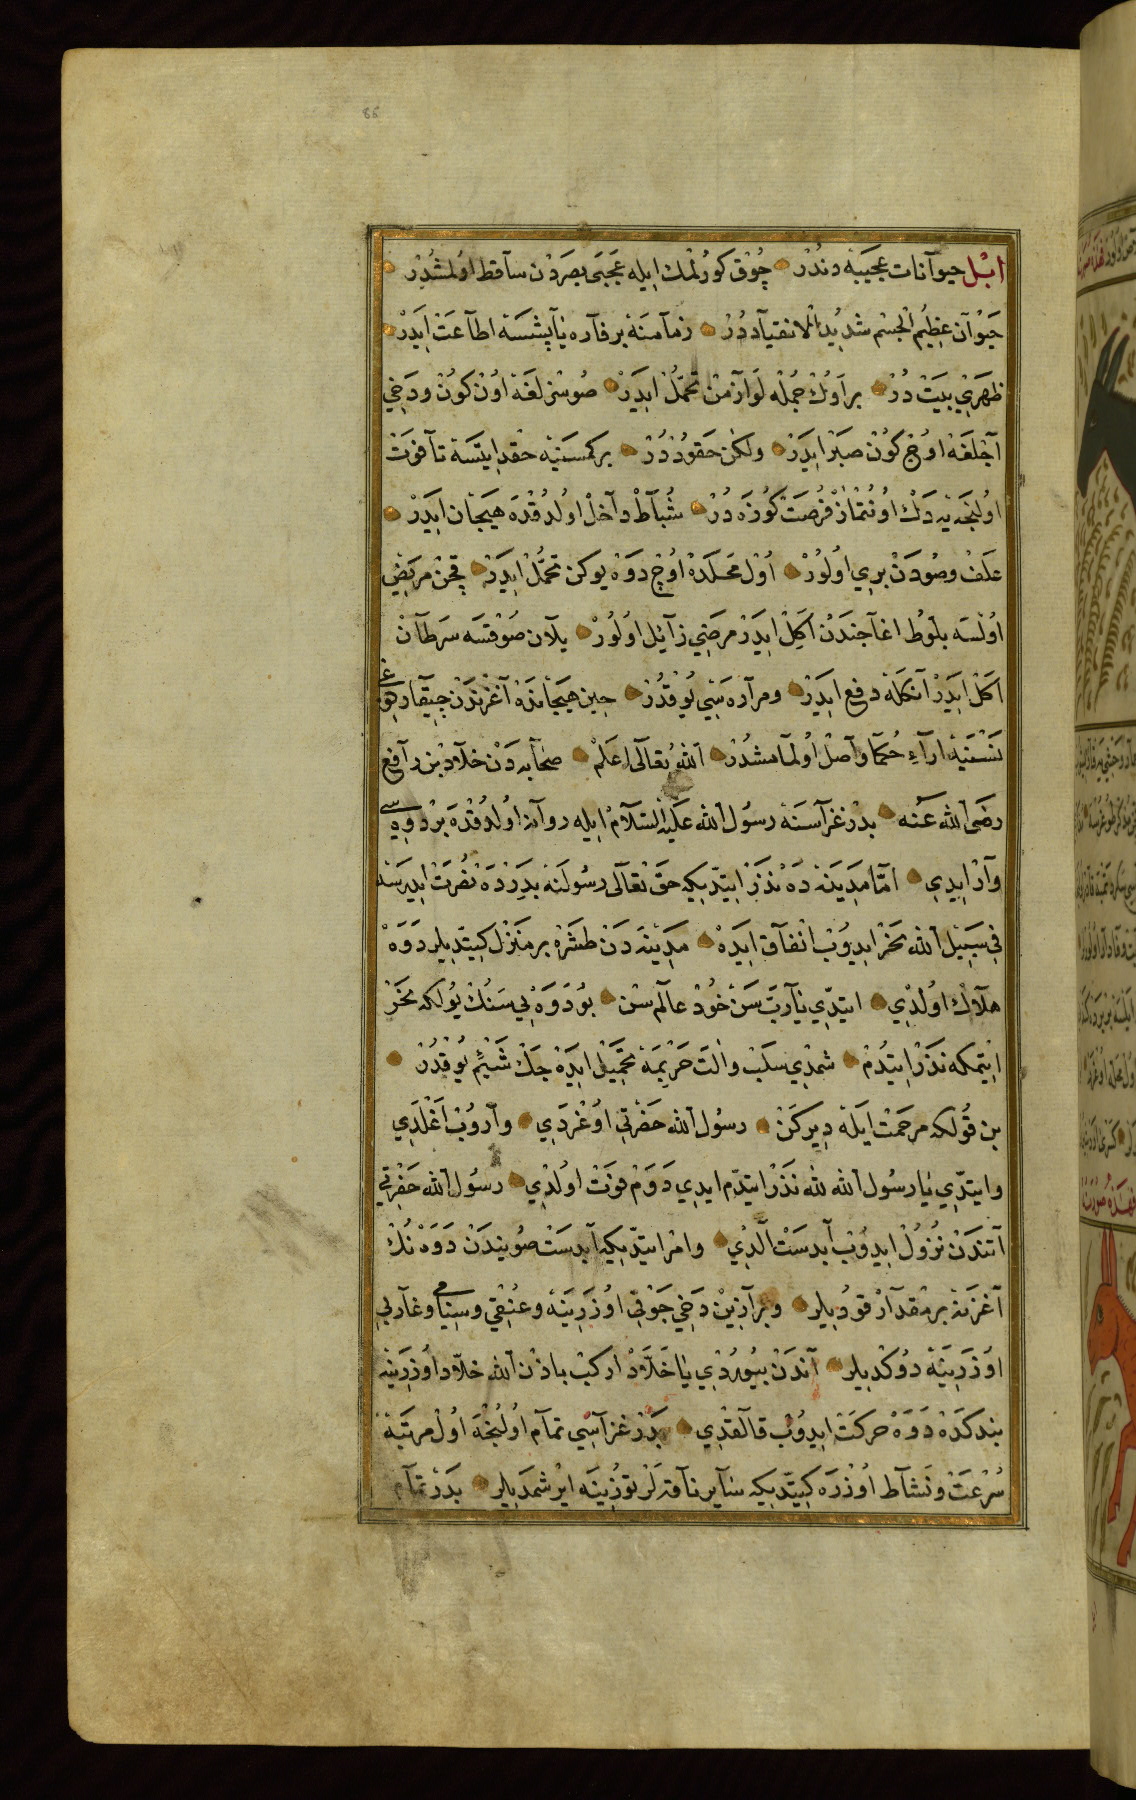 86
ابل حيوانات عجيبه دندر چوق كورلمك ايله عجبى بصردن ساقط اولمشدر
حيوان عظيم الجسم شديد الانقياد در زمامنه بر فاره ياپشسه اطاعت ايدر
ظهرى بيت در بر اوك جمله لوازمن تحمل ايدر صوسزلغه اون كون ودخى
آجلغه اوج كون صبر ايدر ولكن حقود در بر كمسنيه حقد ايتسه تا فوت
اولنجه يه دك اونتماز فرصت كوزه در شباط داخل اولدقده هيجان ايدر
علف وصودن برى اولور اول محلده اوج دوه يوكن تحمل ايدر قچن مريض
اولسه بلوط اغاجندن اكل ايدر مرضى زائل اولور يلان صوقسه سرطان
اكل ايدر آنكله دفع ايدر ومراره سى يوقدر حين هيجانده آغزندن چيقاردوغى
نسنيه اراء حكما واصل اولمامشدر الله تعالى اعلم صحابه دن خلاد بن رافع
رضى الله عنه بدر غزاسنه رسول الله عليه السلام ايله روانه اولدقده بر دوه سى
وار ايدى اما مدينه ده نذر ايتديكه حق تعالى رسولنه بدرده نصرت ايدرسه
فى سبيل الله نحر ايدوب انفاق ايده مدينه دن طشره بر منزل كيتديلر دوه
هلاك اولدى ايتدى يارب سن خود عالم سن بو دوه بى سنك يولكه نحر
ايتمكه نذر ايتدم شمدى سلب والت حريمه تحميل ايده جك شيئم يوقدر
بن قولكه مرحمت ايله ديركن رسول الله حضرتى اوغردى واروب اغلدى
وايتدى يا رسول الله لله نذر ايتدم ايدى دوم فوت اولدى رسول الله حضرتى
آتندن نزول ايدوب آبدست آلدى وامر ايتديكه آبدست صويندن دوه نك
آغزنه بر مقدار قوديلر وبرازين دخى جوفى اوزرينه وعنقى وسنامى وغاربى
اوزرينه دوكديلر آندن بيوردى يا خلاد اركب باذن الله خلاد اوزرينه
بندكده دوه حركت ايدوب قالقدى بدر غزاسى تمام اولنجه اول مرتبه
سرعت ونشاط اوزره كيتديكه ساير ناقه لر توزينه ايرشمديلر بدر تمام